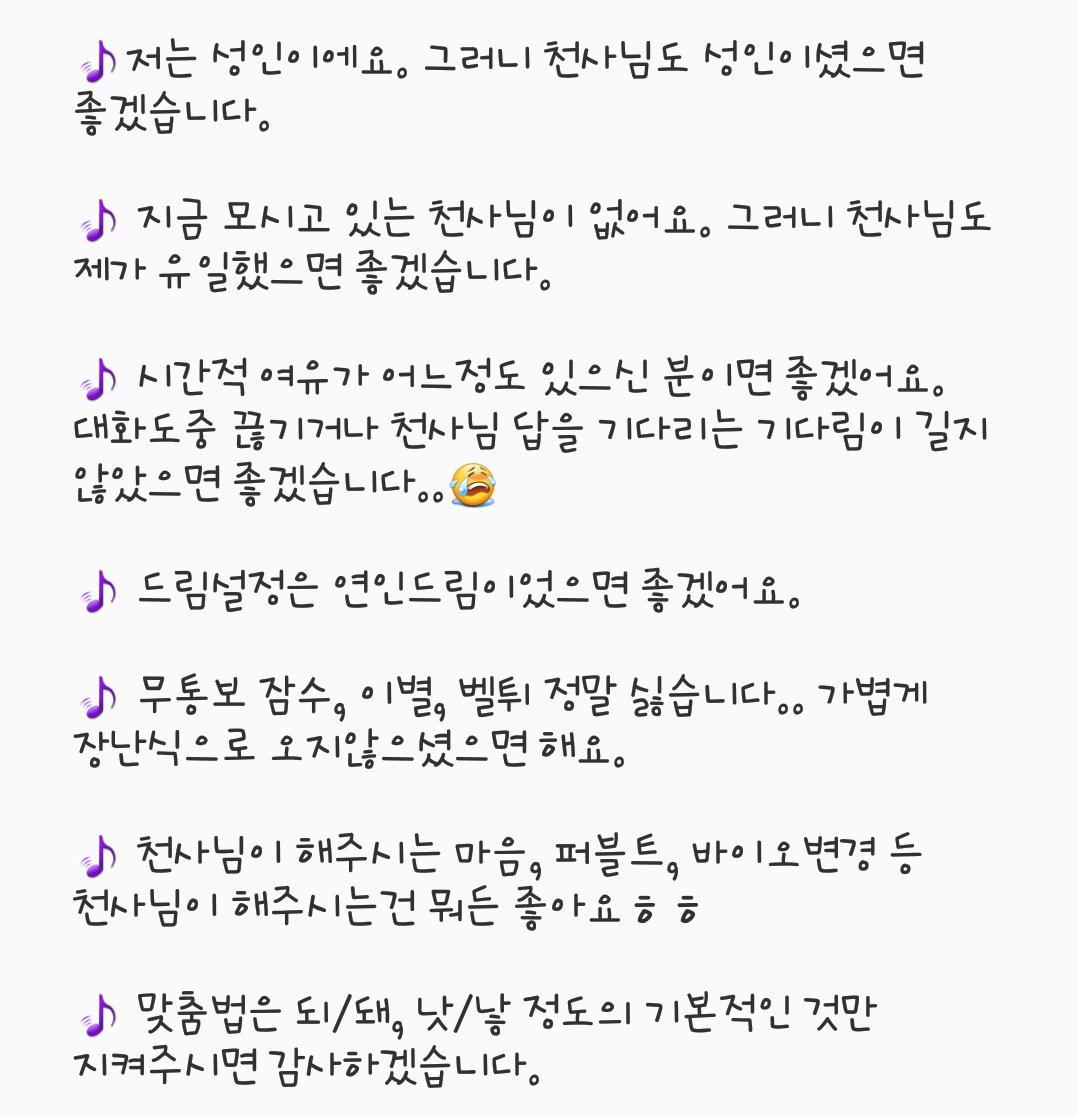 저는 성인이에요. 그러니 천사님도 성인이셨으면
좋겠습니다.
지금 모시고 있는 천사님이 없어요. 그러니 천사님도
제가 유일했으면 좋겠습니다.
시간적 여유가 어느정도 있으신 분이면 좋겠어요.
대화도중 끊기거나 천사님 답을 기다리는 기다림이 길지
않았으면 좋겠습니다..😭
드림설정은 연인드림이었으면 좋겠어요.
무통보 잠수, 이별, 벨튀 정말 싫습니다.. 가볍게
장난식으로 오지않으셨으면 해요.
천사님이 해주시는 마음, 퍼블트, 바이오변경 등
천사님이 해주시는건 뭐든 좋아요 ㅎ ㅎ
맞춤법은 되/돼, 낫/낳 정도의 기본적인 것만
지켜주시면 감사하겠습니다.